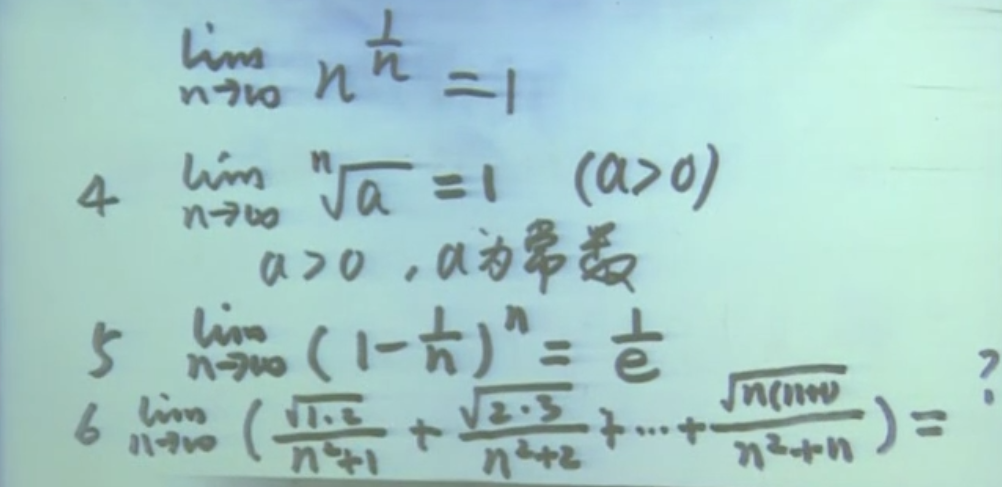 lim n→∞ n^(1/n) = 1
4 lim n→∞ ⁿ√a = 1 (a>0)
a>0, a为常数
5 lim n→∞ (1 - 1/n)^n = 1/e
6 lim n→∞ (√(1·2)/(n²+1) + √(2·3)/(n²+2) + ... + √(n(n+1))/(n²+n)) = ?